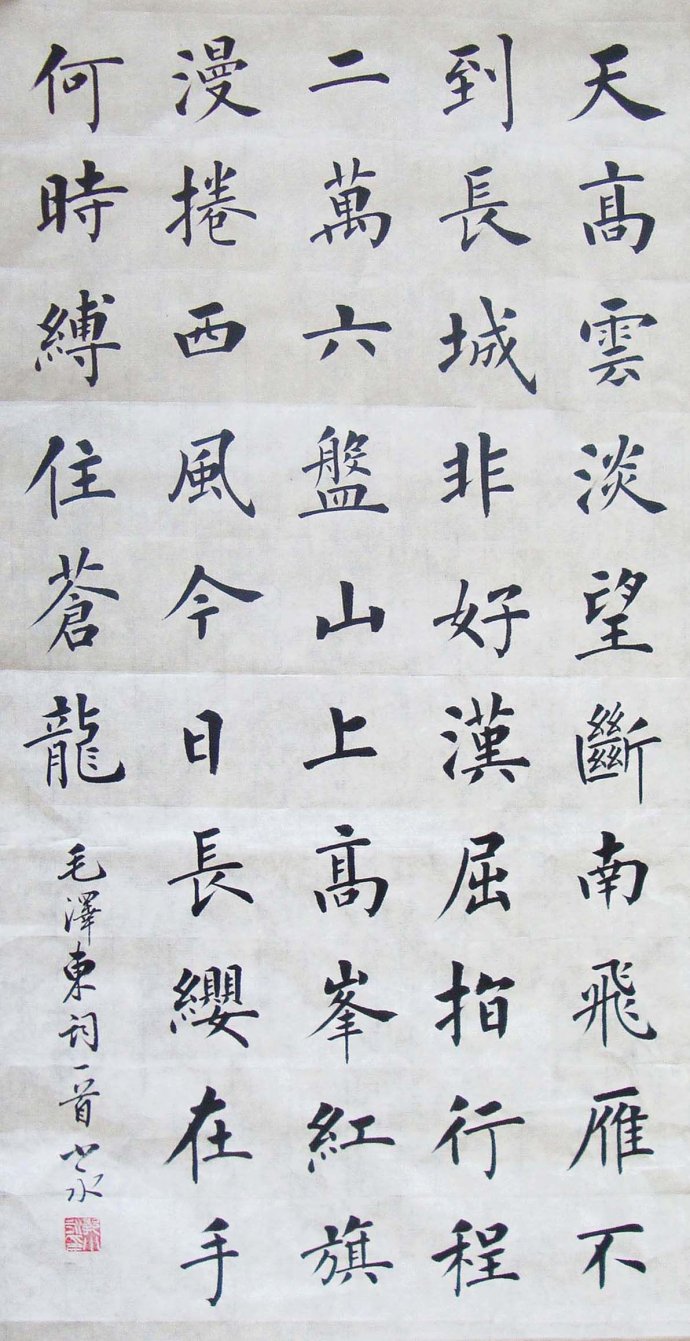 天高雲淡望斷南飛雁不
到長城非好漢屈指行程
二萬六盤山上高峯紅旗
漫捲西風今日長纓在手
何時縛住蒼龍
毛澤東詞一首